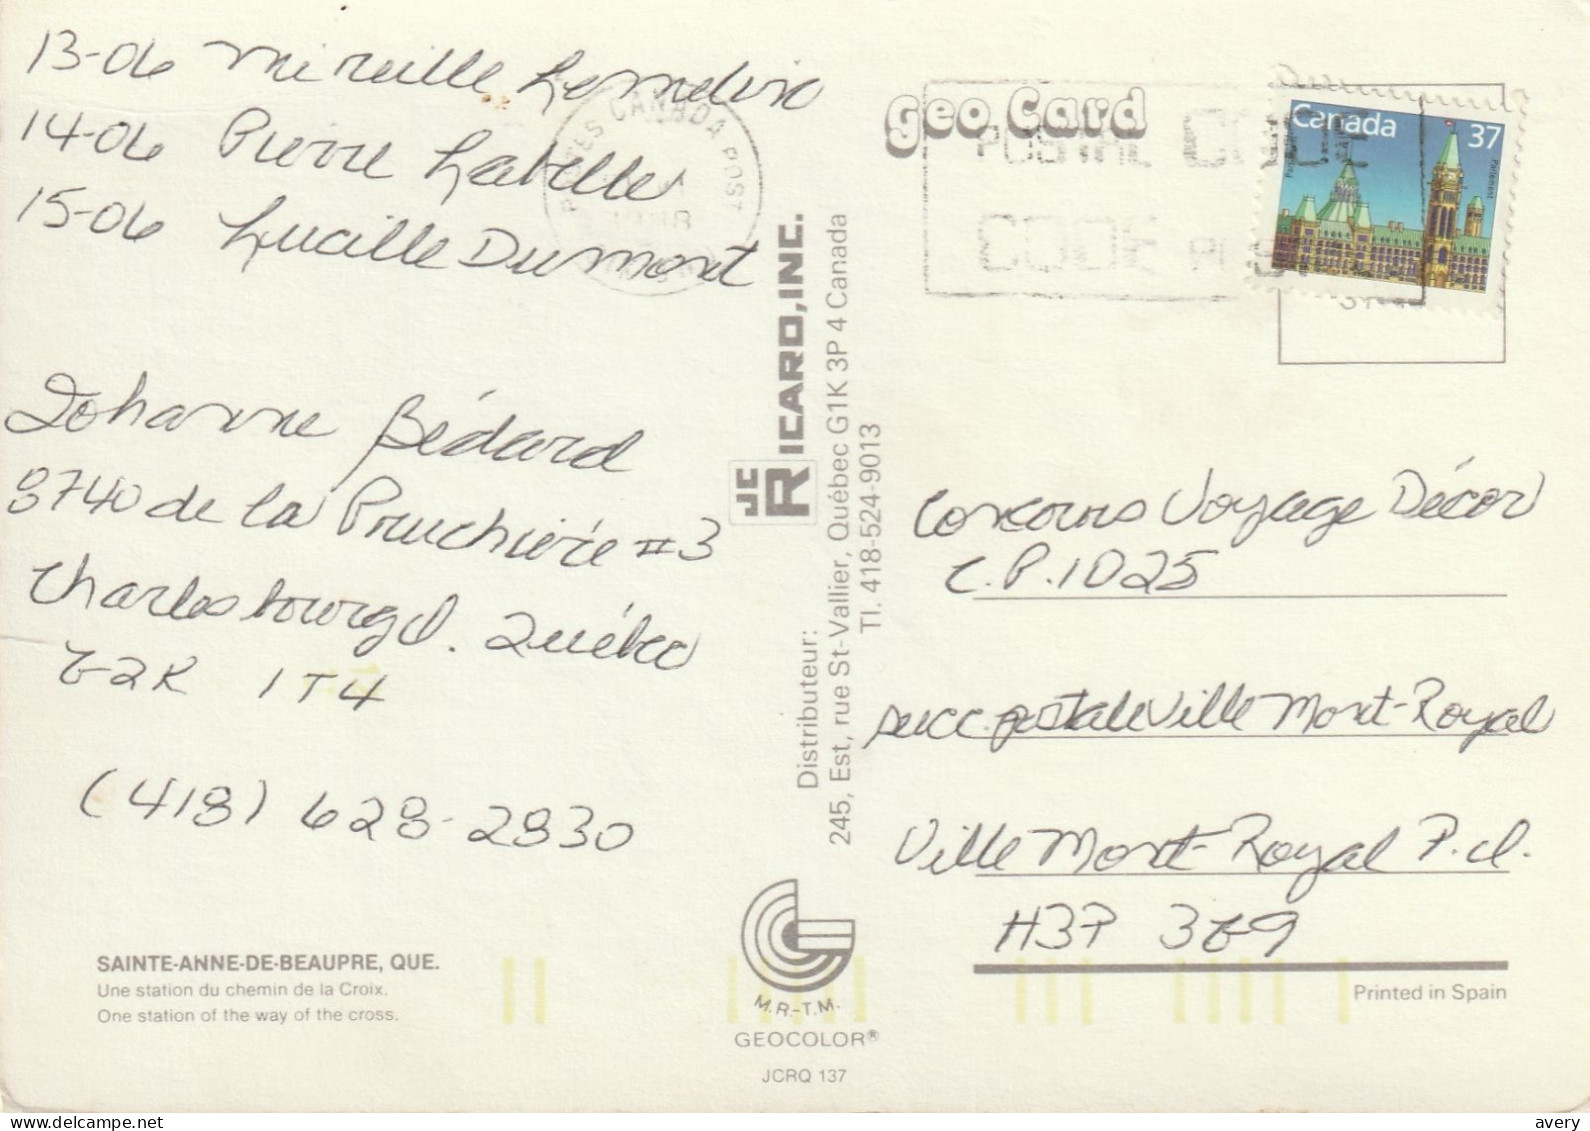 13-06 Mireille Lemelin
14-06 Pierre Labelle
15-06 Lucille Dumont
Johanne Bédard
8740 de la Pruchière #3
Charlesbourg d. Québec
G2K 1T4
(418) 628-2830
SAINTE-ANNE-DE-BEAUPRE, QUE.
Une station du chemin de la Croix.
One station of the way of the cross.
POSTES CANADA POST
JC RICARD, INC.
Distributeur:
245, Est, rue St-Vallier, Québec G1K 3P 4 Canada
Tl. 418-524-9013
M.R.-T.M.
GEOCOLOR®
JCRQ 137
Geo Card
POSTAL CODE
CODE
Canada 37
Parlement
Concours Voyage Décor
C.P. 1025
succ. postale Ville Mont-Royal
Ville Mont-Royal P.Q.
H3P 3G9
Printed in Spain
avery